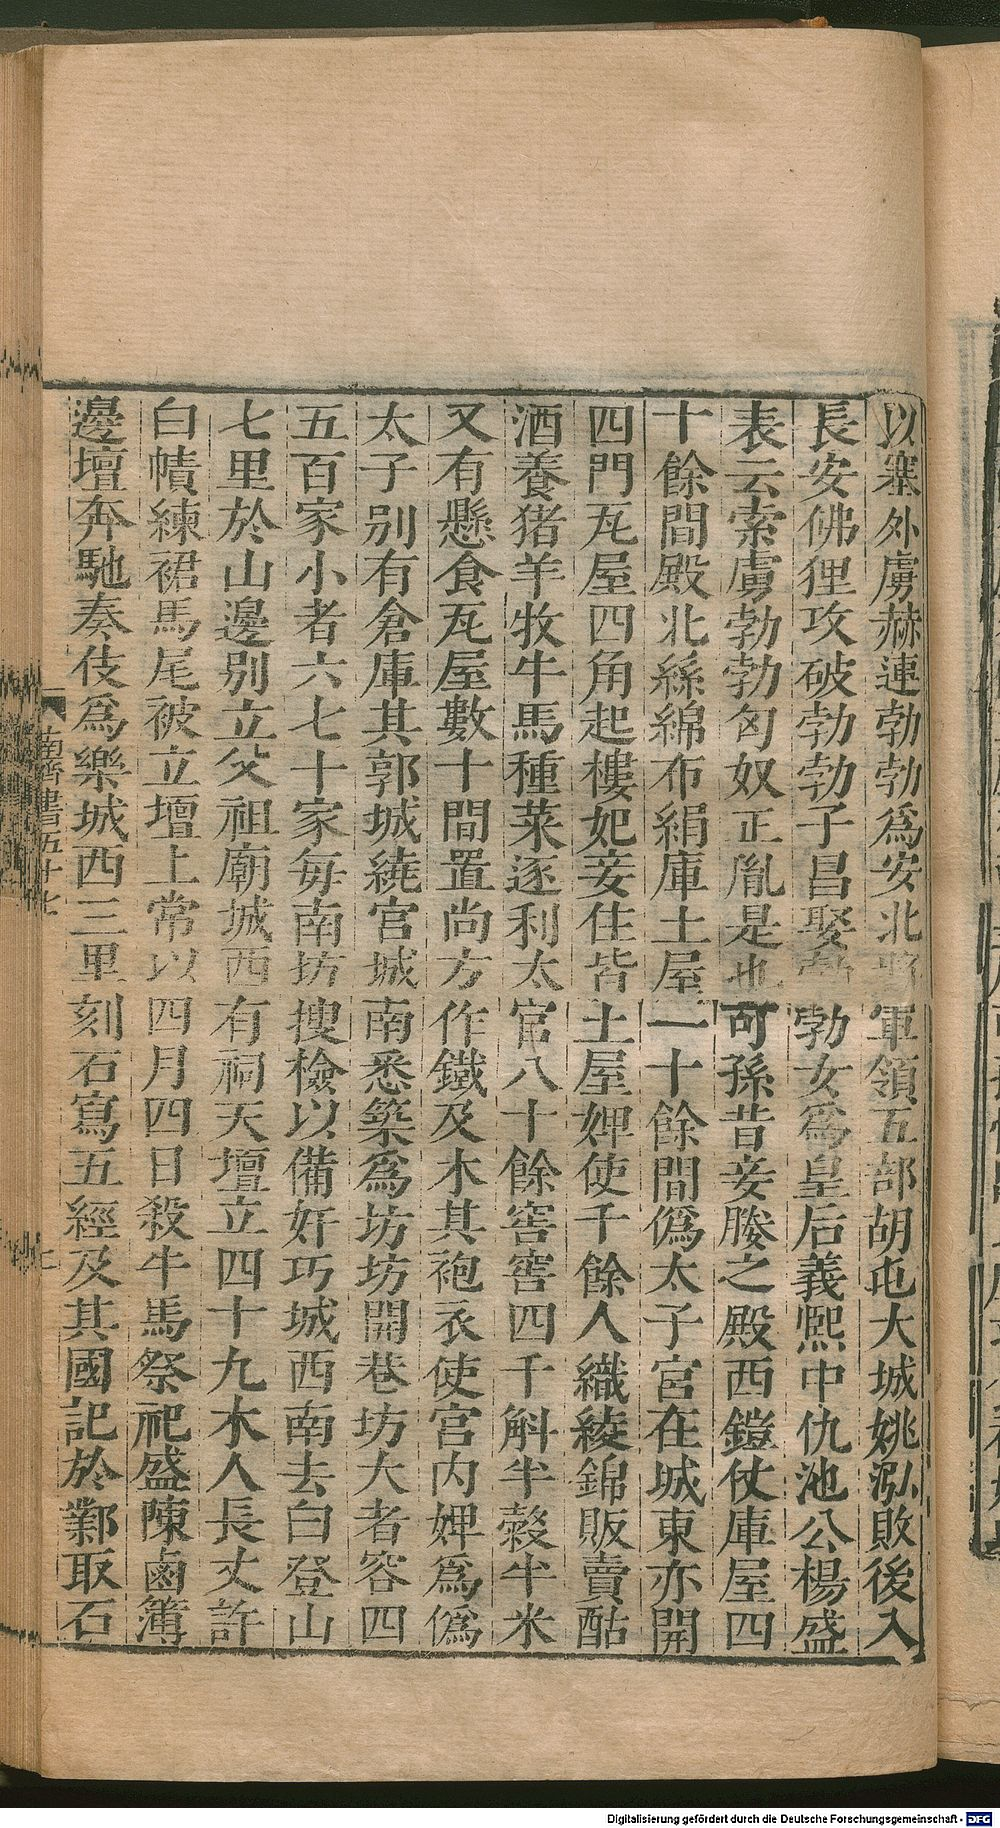 以塞外虜赫連勃勃爲安北將軍領五部胡屯大城姚泓敗後入
長安佛狸攻破勃勃子昌娶勃勃女爲皇后義熙中仇池公楊盛
表云索虜勃勃匈奴正胤是也可孫昔妾媵之殿西鎧仗庫屋四
十餘間殿北絲綿布絹庫土屋一十餘間僞太子宮在城東亦開
四門瓦屋四角起樓妃妾住皆土屋婢使千餘人織綾錦販賣酤
酒養猪羊牧牛馬種菜逐利太官八十餘窖窖四千斛半穀半米
又有懸食瓦屋數十間置尚方作鐵及木其袍衣使宮内婢爲僞
太子别有倉庫其郭城繞宮城南悉築爲坊坊開巷坊大者容四
五百家小者六七十家每南坊搜檢以備奸巧城西南去白登山
七里於山邊别立父祖廟城西有祠天壇立四十九木人長丈許
白幘練裙馬尾被立壇上常以四月四日殺牛馬祭祀盛陳鹵簿
邊壇奔馳奏伎爲樂城西三里刻石寫五經及其國記於鄴取石
南齊書五十七
Digitalisierung gefördert durch die Deutsche Forschungsgemeinschaft - DFG